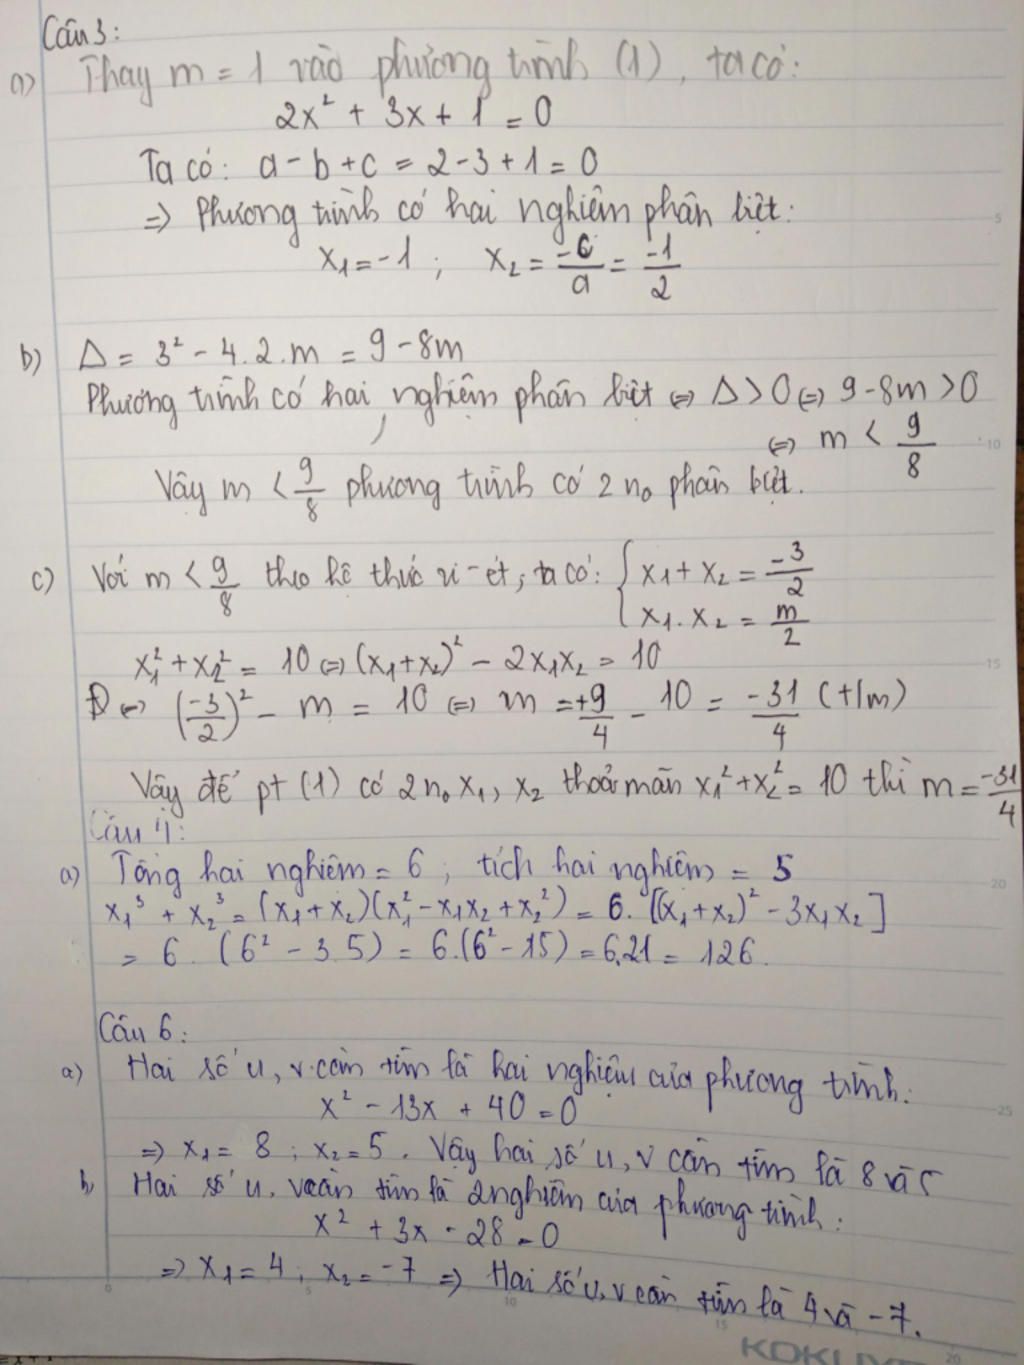 Câu 3:
a) Thay m = 1 vào phương trình (1), ta có:
2x² + 3x + 1 = 0
Ta có: a - b + c = 2 - 3 + 1 = 0
=> Phương trình có hai nghiệm phân biệt:
x₁ = -1 ; x₂ = -c/a = -1/2
b) Δ = 3² - 4.2.m = 9 - 8m
Phương trình có hai nghiệm phân biệt <=> Δ > 0 <=> 9 - 8m > 0
<=> m < 9/8
Vậy m < 9/8 phương trình có 2 n₀ phân biệt.
c) Với m < 9/8 theo hệ thức vi-ét, ta có: { x₁ + x₂ = -3/2
x₁. x₂ = m/2
x₁² + x₂² = 10 <=> (x₁+x₂)² - 2x₁x₂ = 10
<=> (-3/2)² - m = 10 <=> m = +9/4 - 10 = -31/4 (t/m)
Vậy để pt (1) có 2 n₀ x₁, x₂ thoả mãn x₁² + x₂² = 10 thì m = -31/4
Câu 4:
a) Tổng hai nghiệm = 6 ; tích hai nghiệm = 5
x₁³ + x₂³ = (x₁+x₂)(x₁² - x₁x₂ + x₂²) = 6. [(x₁+x₂)² - 3x₁x₂]
= 6. (6² - 3.5) = 6.(6² - 15) = 6.21 = 126.
Câu 6:
a) Hai số u, v cần tìm là hai nghiệm của phương trình:
x² - 13x + 40 = 0
=> x₁ = 8 ; x₂ = 5. Vậy hai số u, v cần tìm là 8 và 5
b, Hai số u, v cần tìm là 2 nghiệm của phương trình:
x² + 3x - 28 = 0
=> x₁ = 4 ; x₂ = -7 => Hai số u, v cần tìm là 4 và -7.